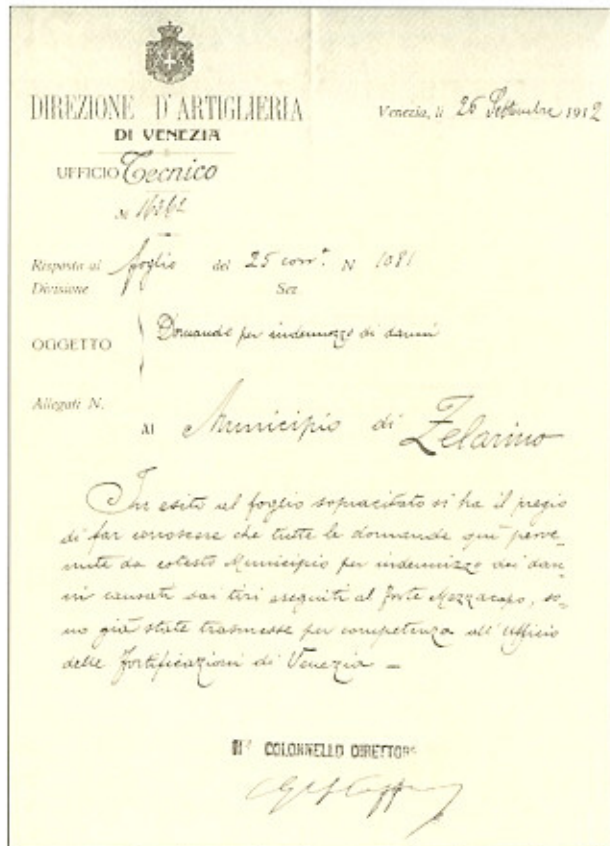 DIREZIONE D'ARTIGLIERIA
DI VENEZIA
Venezia, li 26 Settembre 1912
UFFICIO Tecnico
N
Risposta al foglio del 25 corr. N 1081
Divisione Sez
OGGETTO Domande per indennizzo di danni
Allegati N.
Al Municipio di Zelarino
In esito al foglio sopracitato si ha il pregio
di far conoscere che tutte le domande qui perve-
nute da cotesto Municipio per indennizzo dei dan-
ni causati dai tiri eseguiti al forte Mezzacapo, so-
no già state trasmesse per competenza all'Ufficio
delle Fortificazioni di Venezia —
COLONNELLO DIRETTORE